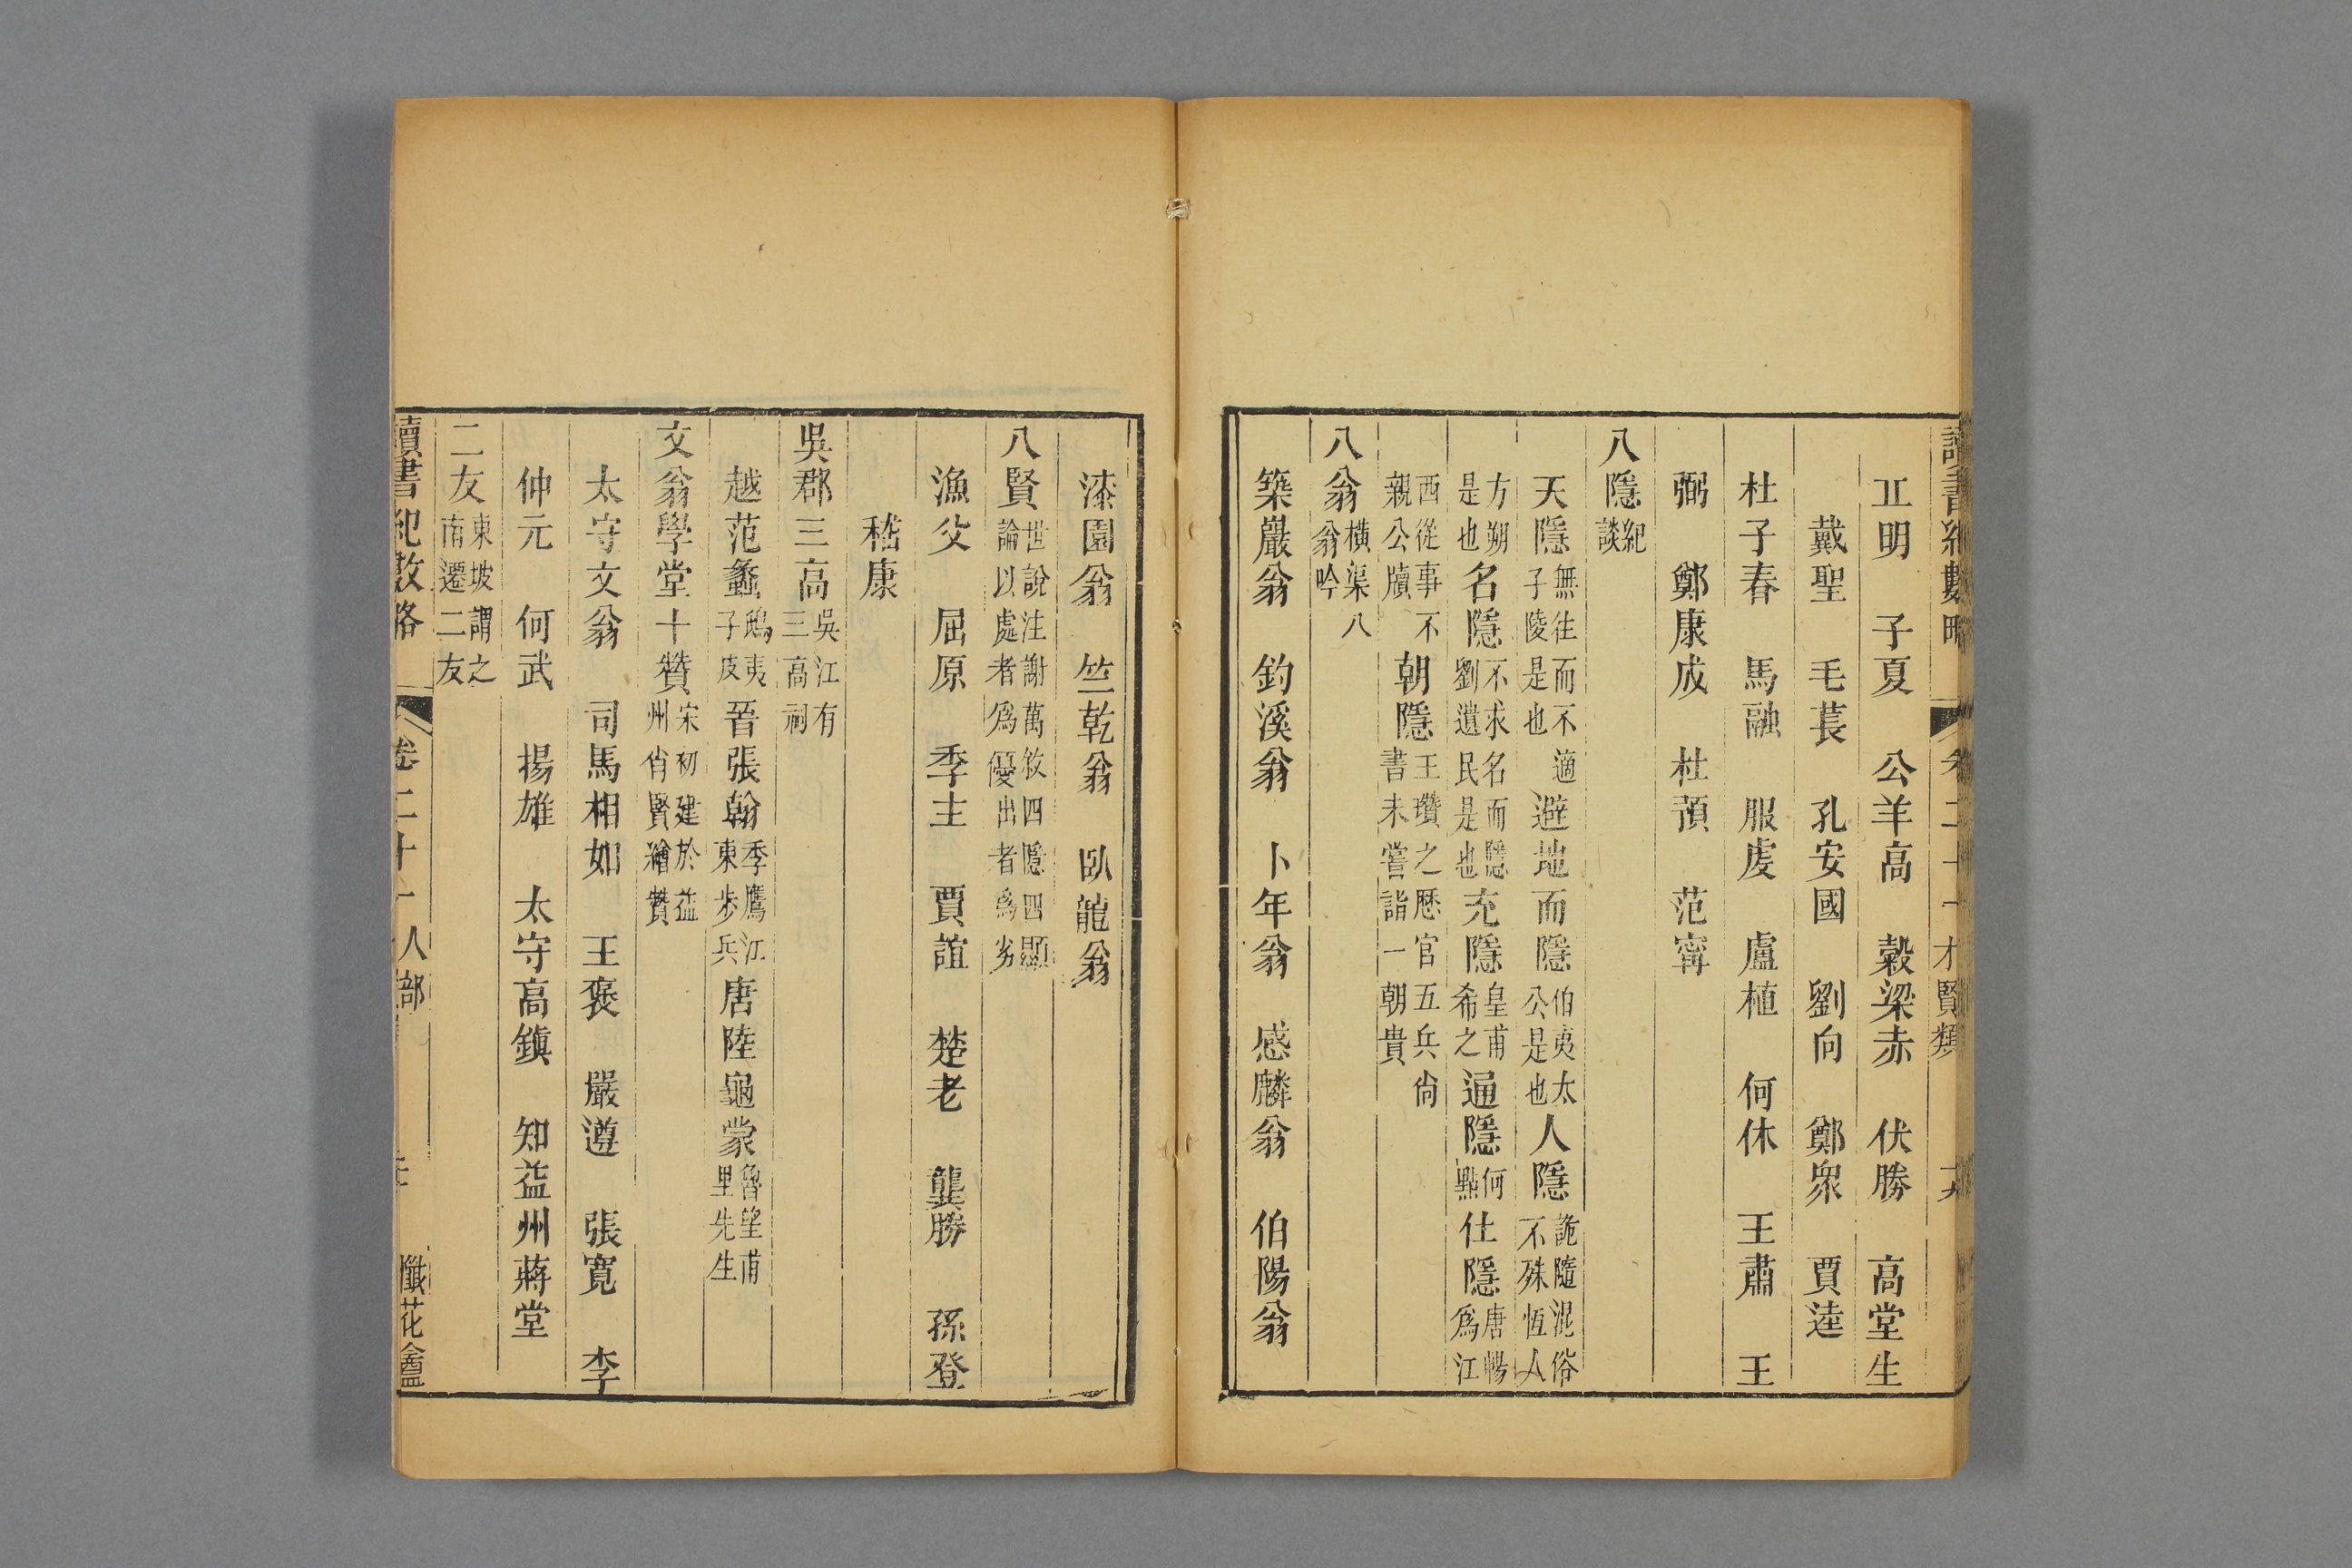 讀書紀數略 卷二十一 才賢類
丘明 子夏 公羊高 穀梁赤 伏勝 高堂生
戴聖 毛萇 孔安國 劉向 鄭衆 賈逵
杜子春 馬融 服虔 盧植 何休 王肅 王
弼 鄭康成 杜預 范寗
八隱 紀談
天隱 無往而不適子陵是也 避地而隱 伯夷太公是也 人隱 詭隨混俗不殊恆人
方朔是也 名隱 不求名而隱劉遺民是也 充隱 皇甫希之 通隱 何點 仕隱 唐暢爲江
西從事不親公牘 朝隱 王瓚之歷官五兵尚書未嘗詣一朝貴
八翁 橫渠八翁吟
築巖翁 釣溪翁 卜年翁 感麟翁 伯陽翁
漆園翁 竺乾翁 臥龍翁
八賢 世說注謝萬敘四隱四顯論以處者爲優出者爲劣
漁父 屈原 季主 賈誼 楚老 龔勝 孫登
嵇康
吳郡三高 吳江有三高祠
越范蠡 鴟夷子皮 晉張翰 季鷹江東步兵 唐陸龜蒙 魯望甫里先生
文翁學堂十贊 宋初建於益州俏賢繪贊
太守文翁 司馬相如 王褒 嚴遵 張寬 李
仲元 何武 揚雄 太守高鎮 知益州蔣堂
二友 東坡謂之南遷二友
讀書紀數略 卷二十一 人部 懺花盦